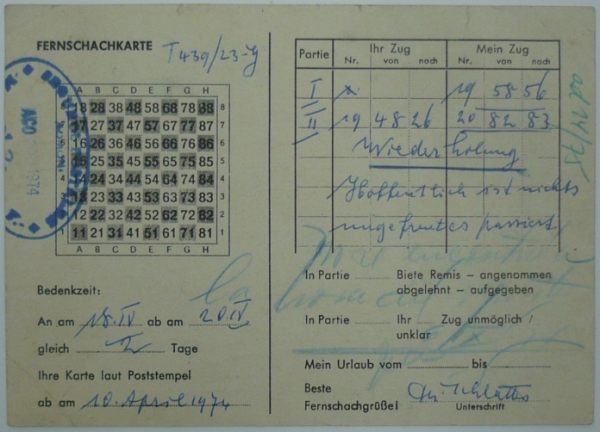 FERNSCHACHKARTE T439/23-g
A B C D E F G H
18 28 38 48 58 68 78 88 8
17 27 37 47 57 67 77 87
16 26 36 46 56 66 76 86
15 25 35 45 55 65 75 85
14 24 34 44 54 64 74 84
13 23 33 43 53 63 73 83
12 22 32 42 52 62 72 82
11 21 31 41 51 61 71 81 1
A B C D E F G H
1974
Bedenkzeit:
An am 18.IV ab am 20.IV
gleich 2 Tage
Ihre Karte laut Poststempel
ab am 10. April 1974
Partie Ihr Zug Mein Zug
Nr. von nach Nr. von nach
I 19 58 56
II 19 48 26 20 82 83
Wiederholung
Hoffentlich ist nichts
ungefreutes passiert
ad 24/75
In Partie Biete Remis – angenommen
abgelehnt – aufgegeben
In Partie Ihr Zug unmöglich /
unklar
Mein Urlaub vom bis
Beste
Fernschachgrüße! Unterschrift